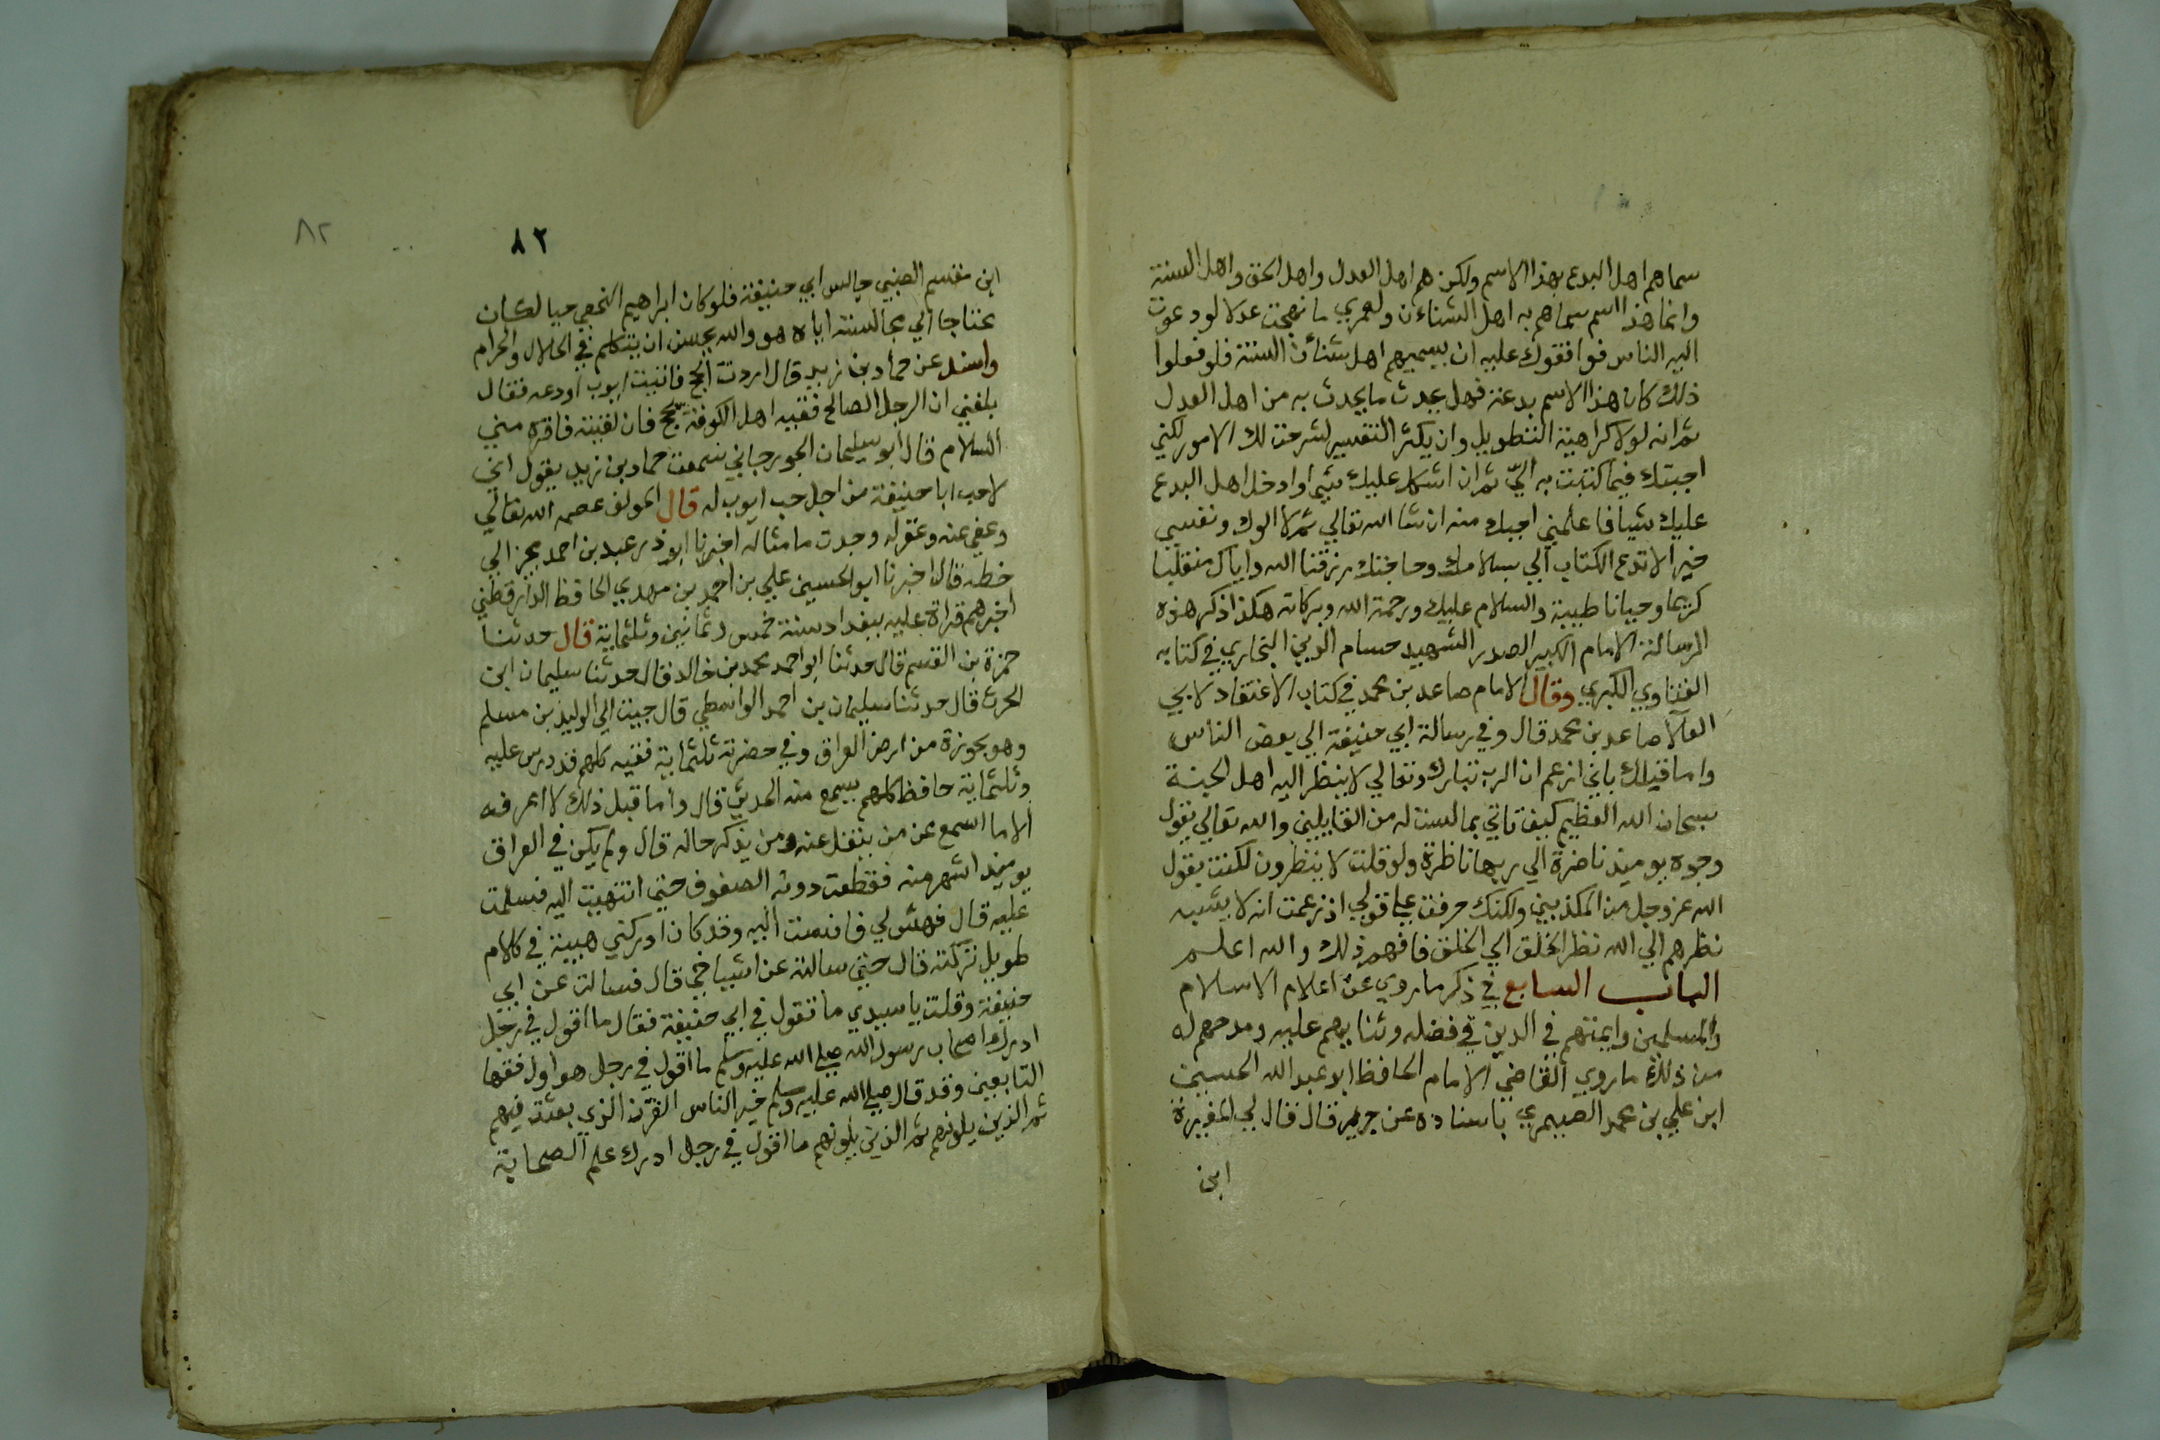 سماهم اهل البدع بهذا الاسم ولكن هم اهل العدل واهل الحق واهل السنة
وانما هذا اسم سماهم به اهل الشناءن ولعمري ما نهجت عدلا لو دعوت
اليه الناس فوافقوك عليه ان يسميهم اهل شنأن السنة فلو فعلوا
ذلك كان هذا الاسم بدعة فهل يحدث ما يحدث به من اهل العدل
ثم انه لولا كراهية التطويل وان يكثر التفسير لشرحت لك الامور لكني
اجبتك فيما كتبت به اليّ ثم ان اشكل عليك شيا وادخل اهل البدع
عليك شيا فاعلمني اجبك منه ان شا الله تعالي ثم لا الوك ونفسي
خيرا لا تدع الكتاب الي بسلامك وحاجتك رزقنا الله واياك منقلبا
كريما وحياتا طيبة والسلام عليك ورحمة الله وبركاته هكذا ذكر هذه
الرسالة الامام الكبير الصدر الشهيد حسام الدين البخاري في كتابه
الفتاوي الكبري وقال الامام صاعد بن محمد في كتاب الاعتقاد لابي
العلا صاعد بن محمد قال وفي رسالة ابي حنيفة الي بعض الناس
واما قيلك باني ازعم ان الرب تبارك وتعالي لا ينظر اليه اهل الجنة
سبحان الله العظيم كيف تاتي بما لست له من القايلين والله تعالي يقول
وجوه يوميذ ناضرة الي ربها ناظرة ولو قلت لا ينظرون لكنت بقول
الله عز وجل من المكذبين ولكنك حرفت علي قولي اذ زعمت انه لا يشبه
نظرهم الي الله نظر الخلق الي الخلق فافهم ذلك والله اعلم
الباب السابع في ذكر ما روي عن اعلام الاسلام
والمسلمين وايمتهم في الدين في فضله وثنايهم عليه ومدحهم له
من ذلك ما روي القاضي الامام الحافظ ابو عبد الله الحسين
ابن علي بن محمد الصيمري باسناده عن جرير قال قال لي المغيرة
ابن
٨٢
٨٢
ابن مقسم الضبي جالس ابي حنيفة فلو كان ابراهيم النخعي حيا لكان
محتاجا الي مجالسته اياه هو والله يحسن ان يتكلم في الحلال والحرام
واسند عن حماد بن زيد قال اردت الحج فاتيت ايوب اودعه فقال
بلغني ان الرجل الصالح فقيه اهل الكوفة يحج فان لقيته فاقره مني
السلام قال ابو سليمان الجورجاني سمعت حماد بن زيد يقول اني
لاحب ابا حنيفة من اجل حب ايوب له قال المولف عصمه الله تعالي
وعفي عنه وغفر له وجدت ما مثاله اخبرنا ابو ذر عبد بن احمد يجز الي
خطه قال اخبرنا ابو الحسين علي بن احمد بن مهدي الحافظ الدارقطني
اخبرهم قراة عليه ببغداد سنة خمس وثمانين وثلثماية قال حدثنا
حمزة بن القسم قال حدثنا ابو احمد محمد بن خالد قال حدثنا سليمان ابن
الحرث قال حدثنا سليمان بن احمد الواسطي قال جيت الي الوليد بن مسلم
وهو بحوزة من ارض العراق وفي حضرته ثلثماية فقيه كلهم قد درس عليه
وثلثماية حافظ كلهم يسمع منه الحديث قال واما قبل ذلك لا اعرفه
الا ما اسمع عن من ينقل عنه ومن يذكر حاله قال ولم يكن في العراق
يوميذ اشهر منه فقطعت دونه الصفوف حتي انتهيت اليه فسلمت
عليه قال فهش لي فانست اليه وقد كان ادركني هيبة في كلام
طويل تركته قال حتي سالته عن اشياخي قال فسالته عن ابي
حنيفة وقلت يا سيدي ما تقول في ابي حنيفة فقال ما اقول في رجل
ادرك اصحاب رسول الله صلي الله عليه وسلم ما اقول في رجل هو اول فقها
التابعين وقد قال صلي الله عليه وسلم خير الناس القرن الذي بعثت فيهم
ثم الذين يلونهم ثم الذين يلونهم ما اقول في رجل ادرك علم الصحابة